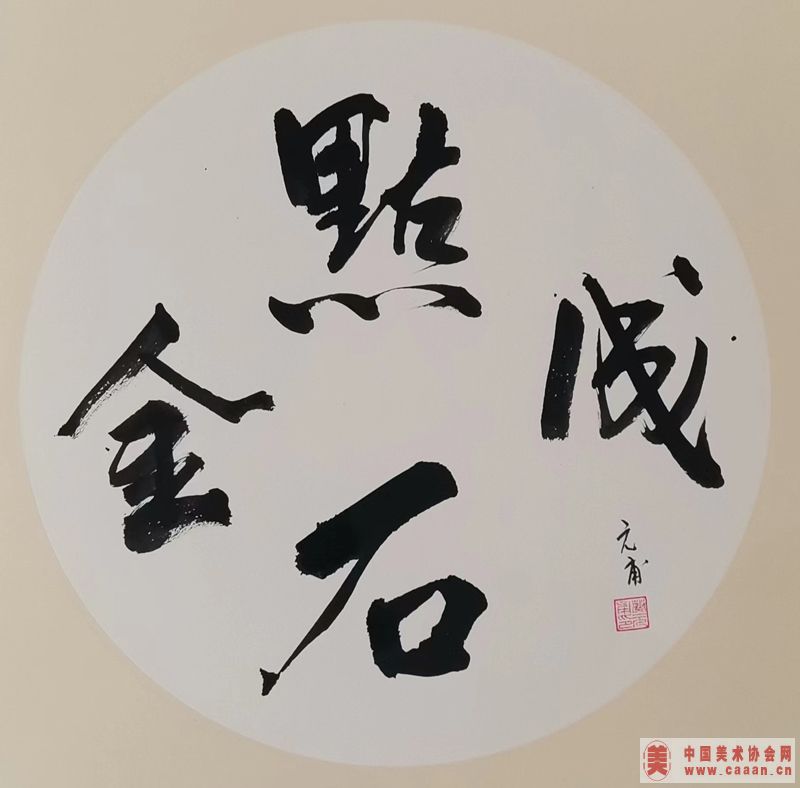 點石
成金
元甫
美
中国美术协会网
www.caaan.cn